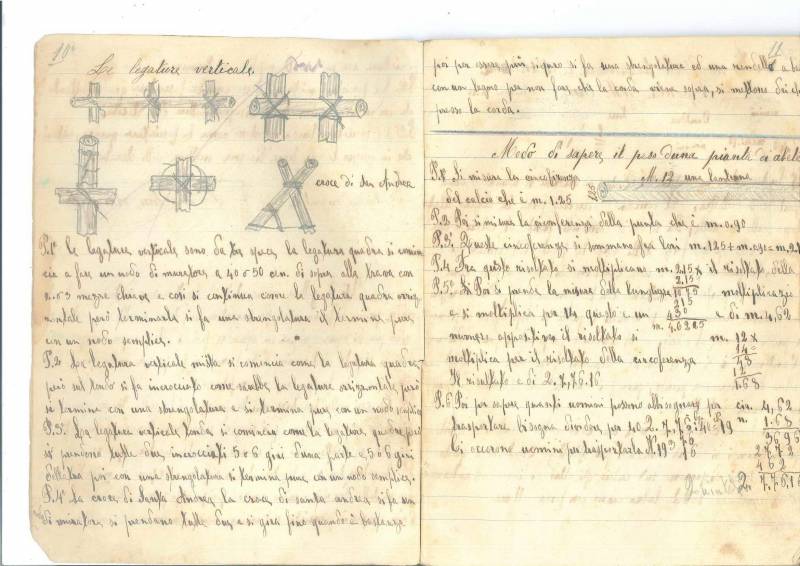 10
Le legature verticale.
croce di san Andrea
P.1° Le legature verticale sono da tre specie la legatura quadra si comin
cia a fare un nodo di muratore a 40 o 50 cen. di sopra alla trave con
2. o 3 mezze chiave e così si continua come la legatura quadra orriz
ontale però terminarla si fa una strangolatura il termina pure
con un nodo semplice.
P.2 La legatura verticale mista si comincia come la legatura quadra
però sul tondo si fa incrociato come sarebbe la legature orrizontale però
si termina con una strangolatura e si termina pure con un nodo semplice
P.3° La legatura verticale tonda si comincia come la legatura quadra però
si prendono tutte due incrociati 5 o 6 giri d'una parte e 5 o 6 giri
dell'altra poi con una strangolatura si termina pure con un nodo semplice.
P.4° La croce di Santa Andrea la croce di santa andrea si fa un
di muratore si prendano tutte due e si gira fino quando è bastanza
11
poi per essere più siguro si fa una strangolatura ed una
con un legno per non fare che la corda viene sopra, si mettono dei
presso la corda.
Modo di sapere il peso d'una pianta di abete
P.1° Si misura la circonferenza M. 12 una
del calcio che è m. 1.25
1.25
P.2 Poi si misura la circonferenza della punta che è m. 0.90
P.3° Queste circonferenza si sommano fra loro m. 1.25 + m. 0.90 = m. 2.1
P.4 Fra questo risultato si moltiplicano m. 2.15 x il risultato della
2.15
P.5° Si Poi si prende la misura della lunghezza 1075 moltiplicazie
215
e si moltiplica per 14 questo è un 430 e di m. 4,62
m. 4.6225
numero appositivo il risultato si m. 12 x
moltiplica per il risultato della circoferenza 14 =
48
Il risultato e di 2.7,76.16 12
1.68
P.6° Poi per sapere quanti uomini possono abbisognare per cir. 4,62
trasportare bisogna dividere per 40 2.7.76:40=19 n. 1.68
Ci occorono uomini per trasportarla N. 19 3696
2772
462
2. 7.7 6.16